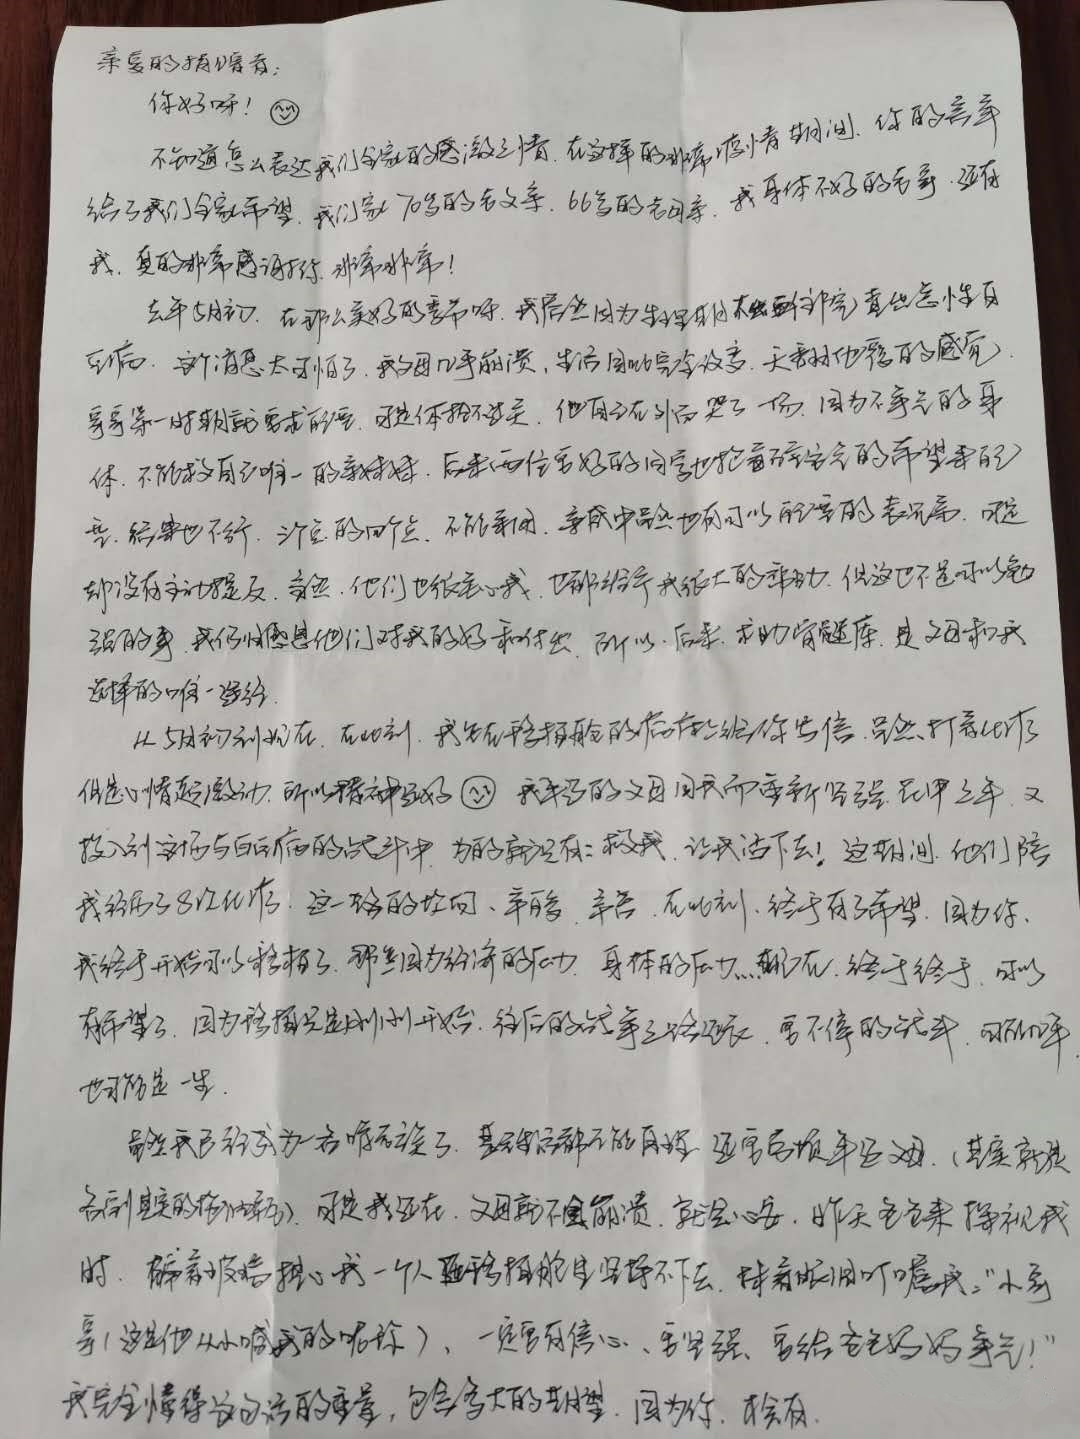 亲爱的捐赠者:
你好呀!
不知道怎么表达我们全家的感激之情,在这样的非常疫情期间,你的善举
给了我们全家希望,我们家70岁的老父亲,66岁的老母亲,我身体不好的老哥,还有
我,真的非常感谢你,非常非常!
去年5月初,在那么美好的季节呀,我居然因为生理期 查出急性白
血病,这个消息太可怕了,我父母几乎崩溃,生活因此完全改变,天翻地覆的感觉,
哥哥第一时期就要求配型,可是体检不过关,他自己在外面哭了一场,因为不争气的身
体,不能救自己唯一的亲妹妹,后来两位要好的同学也抱着碰运气的希望来配
型,结果也不行,之后的四个点,不能采用,亲戚中虽然也有可以配型的表兄弟,可是
却没有主动提及,当然,他们也很关心我,也都给予我很大的帮助,但这也不是可以勉
强的事,我仍感恩他们对我的好和付出,所以,后来,求助骨髓库,是父母和我
选择的唯一途径.
从5月初到现在,在此刻,我坐在移植舱的病床上给你写信,虽然打着化疗
但是心情超激动,所以精神还好 我年迈的父母因我而重新坚强,花甲之年,又
投入到这场与白血病的战斗中,为的就只有:救我,让我活下去!这期间,他们陪
我经历了8次化疗,这一路的坎坷、辛酸、辛苦,在此刻,终于有了希望,因为你、
我终于开始可以移植了,那些因为经济的压力,身体的压力……现在,终于终于,可以
有希望了,因为移植只是刚刚开始,往后的战争之路还长,要不停的战斗,可能几年,
也可能是一生.
虽然我已经成为一名啃老族了,基本生活都不能自理,还需要烦年迈父母,(其实就是
名副其实的拖油瓶),可是我还在,父母就不会崩溃,就会心安,昨天爸爸来探视我
时, 担心我一个人在移植舱里坚持不下去,抹着眼泪叮嘱我:"小哥
哥(这是他从小喊我的昵称)、一定要有信心、要坚强、要给爸爸妈妈争气!"
我完全懂得这句话的重量,包含多大的期望,因为你,才会有.